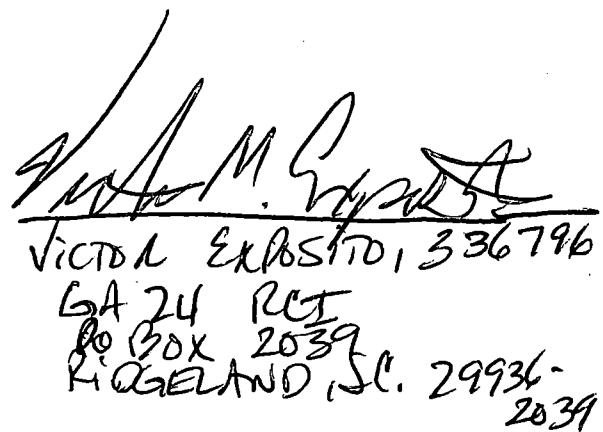 Victor M. Exposito
VICTOR EXPOSITO, 336796
GA 24 RCI
PO BOX 2039
RIDGELAND, SC. 29936-
2039